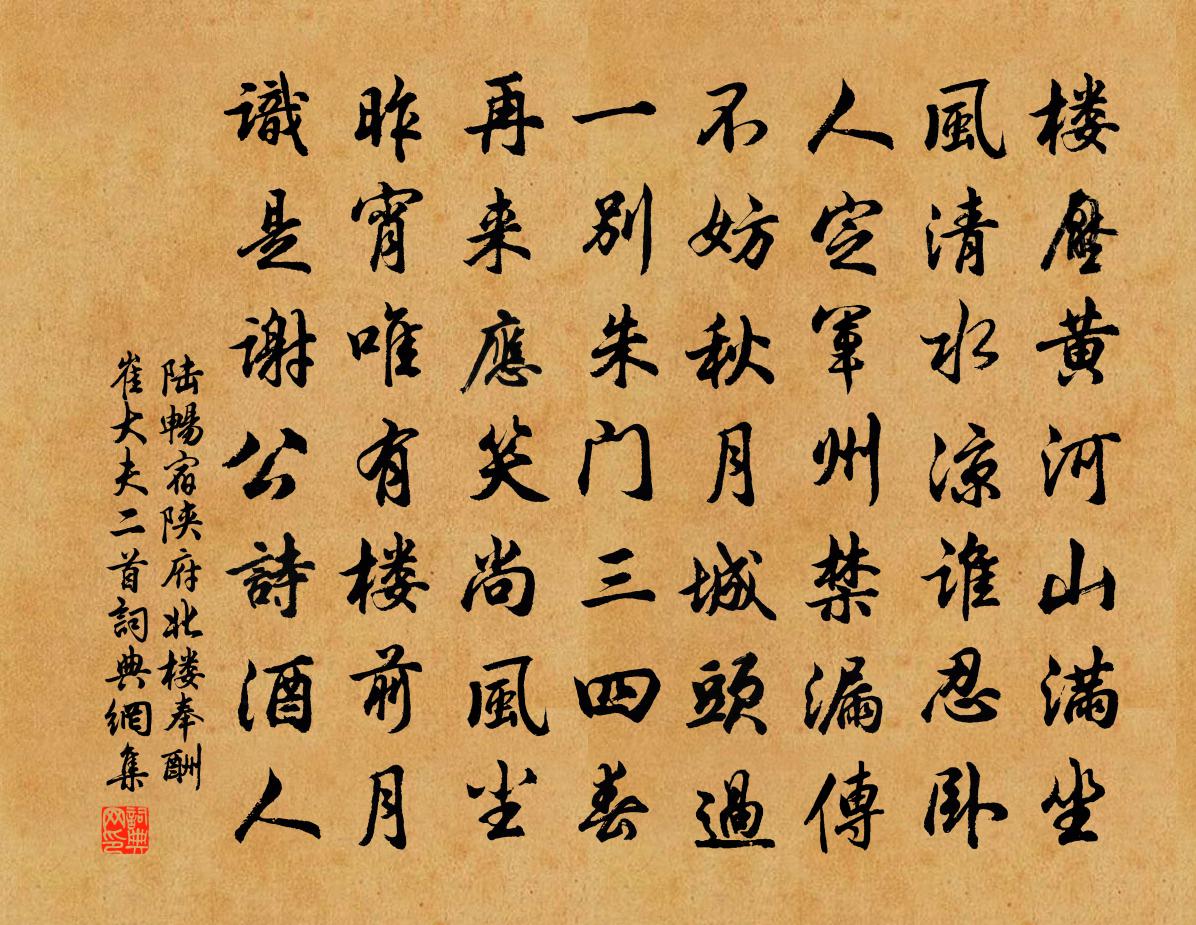 楼壓黄河山满坐
風清水凉谁忍卧
人定軍州禁漏傳
不妨秋月城頭過
一别朱门三四春
再来應笑尚風尘
昨宵唯有楼前月
識是谢公詩酒人
陆暢宿陕府北楼奉酬
崔大夫二首詞典網集
詞典网印